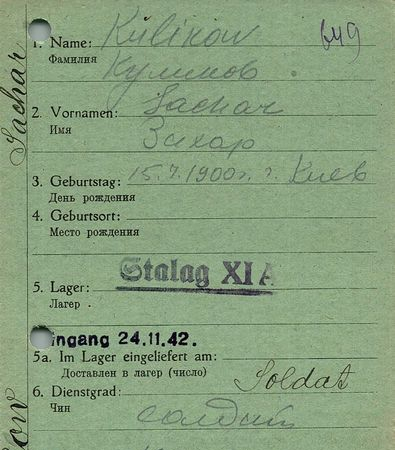 1. Name: Kulikow
649
Фамилия Куликов
2. Vornamen: Sachar
Имя Захар
3. Geburtstag: 15.7.1900г. г. Киев
День рождения
4. Geburtsort:
Место рождения
5. Lager: Stalag XI A
Лагер
ingang 24.11.42.
5a. Im Lager eingeliefert am:
Доставлен в лагер (число)
6. Dienstgrad: Soldat
Чин солдат
Sachar
ow